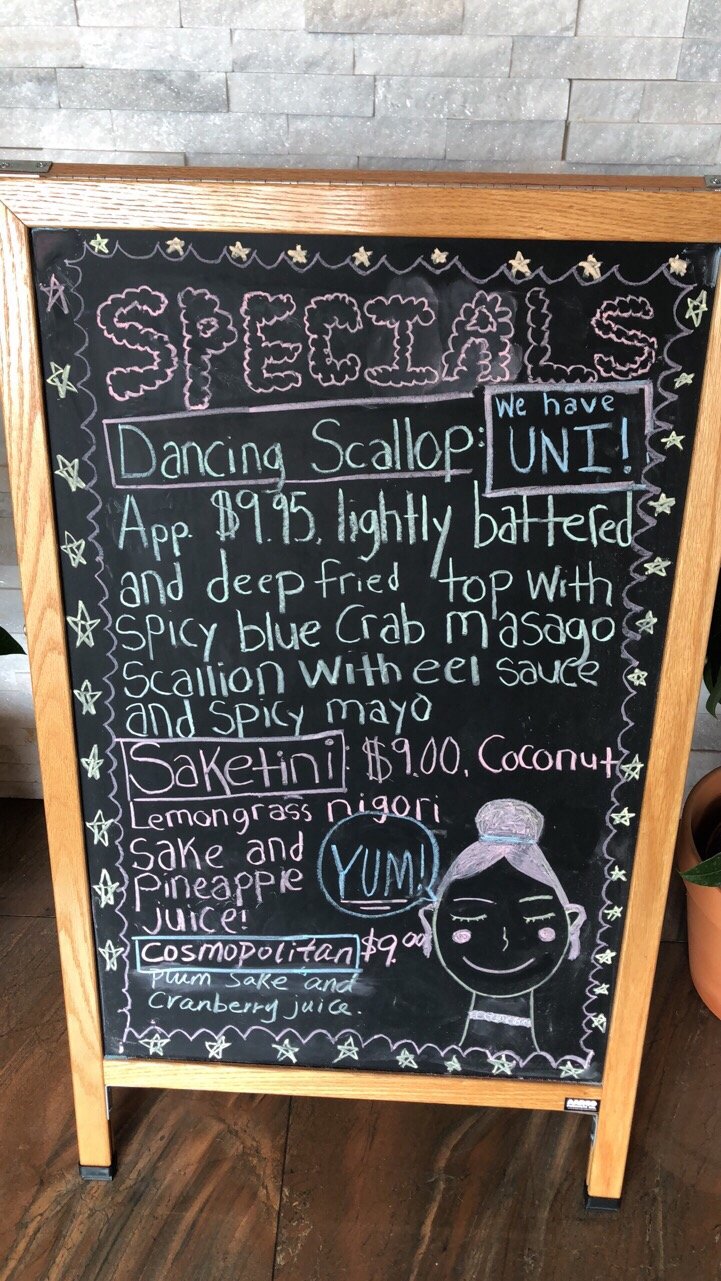 SPECIALS
Dancing Scallop:
We have
UNI!
App. $9.95. lightly battered
and deep fried top with
spicy blue Crab masago
scallion with eel sauce
and spicy mayo
Saketini: $9.00. Coconut
Lemongrass nigori
sake and
pineapple
juice!
YUM!
Cosmopolitan $9.00
Plum sake and
Cranberry juice.